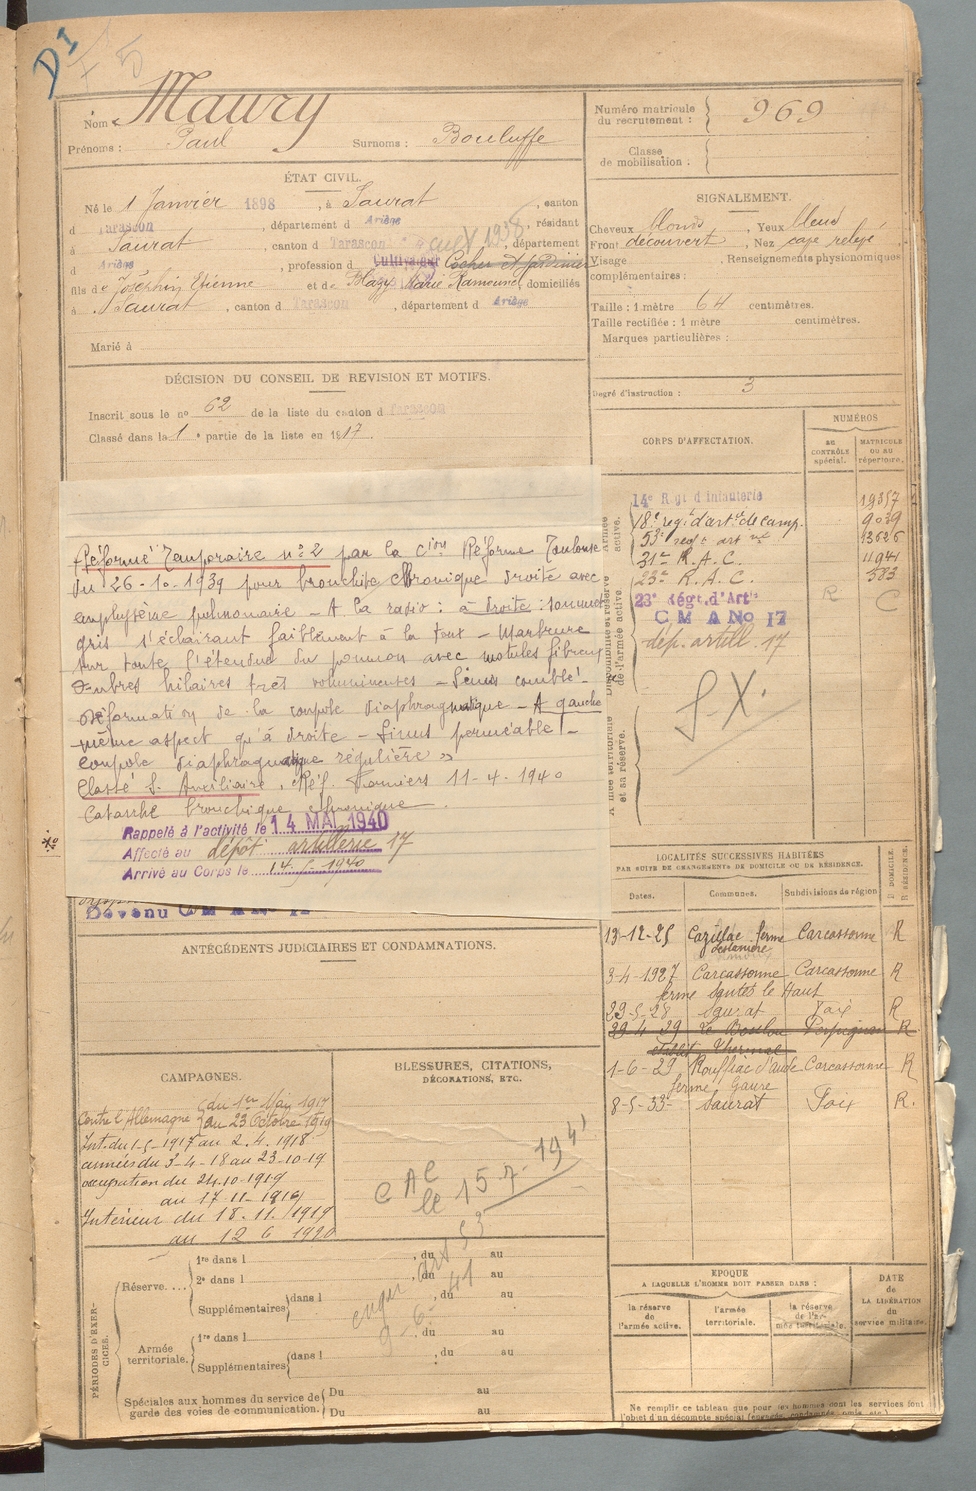 DI
5
Nom : Maury
Prénoms : Paul Surnoms : Bouluffe
Numéro matricule du recrutement : 969
Classe de mobilisation :
ÉTAT CIVIL.
Né le 1 Janvier 1898, à Saurat, canton
d Tarascon, département d Ariège, résidant
à Saurat, canton d Tarascon, département
d Ariège, profession d Cultivateur Cocher et jardinier
fils de Joséphin Etienne et de Blazy Marie Ramounet, domiciliés
à Saurat, canton d Tarascon, département d Ariège
Marié à
SIGNALEMENT.
Cheveux blonds, Yeux bleus
Front découvert, Nez cave relevé
Visage , Renseignements physionomiques
complémentaires :
Taille : 1 mètre 64 centimètres.
Taille rectifiée : 1 mètre centimètres.
Marques particulières :
Degré d'instruction : 3
DÉCISION DU CONSEIL DE REVISION ET MOTIFS.
Inscrit sous le no 62 de la liste du canton d Tarascon
Classé dans la 1e partie de la liste en 1917.
Réformé Temporaire no 2 par la Cion Réforme Toulouse
du 26-10-1939 pour bronchite chronique droite avec
emphysème pulmonaire - A la radio : à droite : sommet
gris s'éclairant faiblement à la toux - Marbrure
sur toute l'étendue du poumon avec nodules fibreux
Ombres hilaires très volumineuses - Sinus comblé -
Déformation de la coupole diaphragmatique - A gauche
même aspect qu'à droite - Sinus perméable -
Coupole diaphragmatique régulière »
Classé S. Auxiliaire, Réf. Pamiers 11-4-1940
Catarrhe bronchique chronique.
Rappelé à l'activité le 14 MAI 1940
Affecté au dépôt artillerie 17
Arrivé au Corps le 14-5-1940
Devenu C M A No 17
CORPS D'AFFECTATION.
NUMÉROS
au CONTRÔLE spécial.
MATRICULE OU AU répertoire.
Armée active.
14e Rgt d'Infanterie 19357
18e regt d'artie de camp. 9039
53e regt art 13626
31e R.A.C. 11941
23e R.A.C. 583
Disponibilité et réserve de l'armée active.
23e Régt. d'Artie R C
C M A No 17
dép. artill. 17
Armée territoriale et sa réserve.
S.X.
LOCALITÉS SUCCESSIVES HABITÉES
PAR SUITE DE CHANGEMENTS DE DOMICILE OU DE RÉSIDENCE.
Dates. Communes. Subdivisions de région
D DOMICILE. R RÉSIDENCE.
13-12-25 Cazillac ferme Carcassonne R
3-4-1927 Carcassonne Carcassonne R
ferme Sautès le Haut
29-5-28 Saurat Foix R
29 4 29 Le Boulou Perpignan R
établit Thermal
1-6-29 Rouffiac d'aude Carcassonne R
ferme Gaure
8-5-33- Saurat Foix R.
ANTÉCÉDENTS JUDICIAIRES ET CONDAMNATIONS.
CAMPAGNES.
Contre l'Allemagne du 1er Mai 1917
au 23 Octobre 1919
Int. du 1-5-1917 au 2.4.1918
armées du 3-4-18 au 23-10-19
occupation du 24.10-1919
au 17-11-1919
Intérieur du 18.11.1919
au 12 6 1920
BLESSURES, CITATIONS,
DÉCORATIONS, ETC.
C A C
le 15-7-1941
PÉRIODES D'EXERCICES.
Réserve....
1re dans l , du au
2e dans l , du au
Supplémentaires dans l , du au
Armée territoriale.
1re dans l , du au
Supplémentaires dans l , du au
Spéciales aux hommes du service de garde des voies de communication.
Du au
Du au
EPOQUE
A LAQUELLE L'HOMME DOIT PASSER DANS :
la réserve de l'armée active.
l'armée territoriale.
la réserve de l'armée territoriale.
DATE de LA LIBÉRATION du service militaire.
Ne remplir ce tableau que pour les hommes dont les services font
l'objet d'un décompte spécial (engagés, condamnés, omis, etc.)